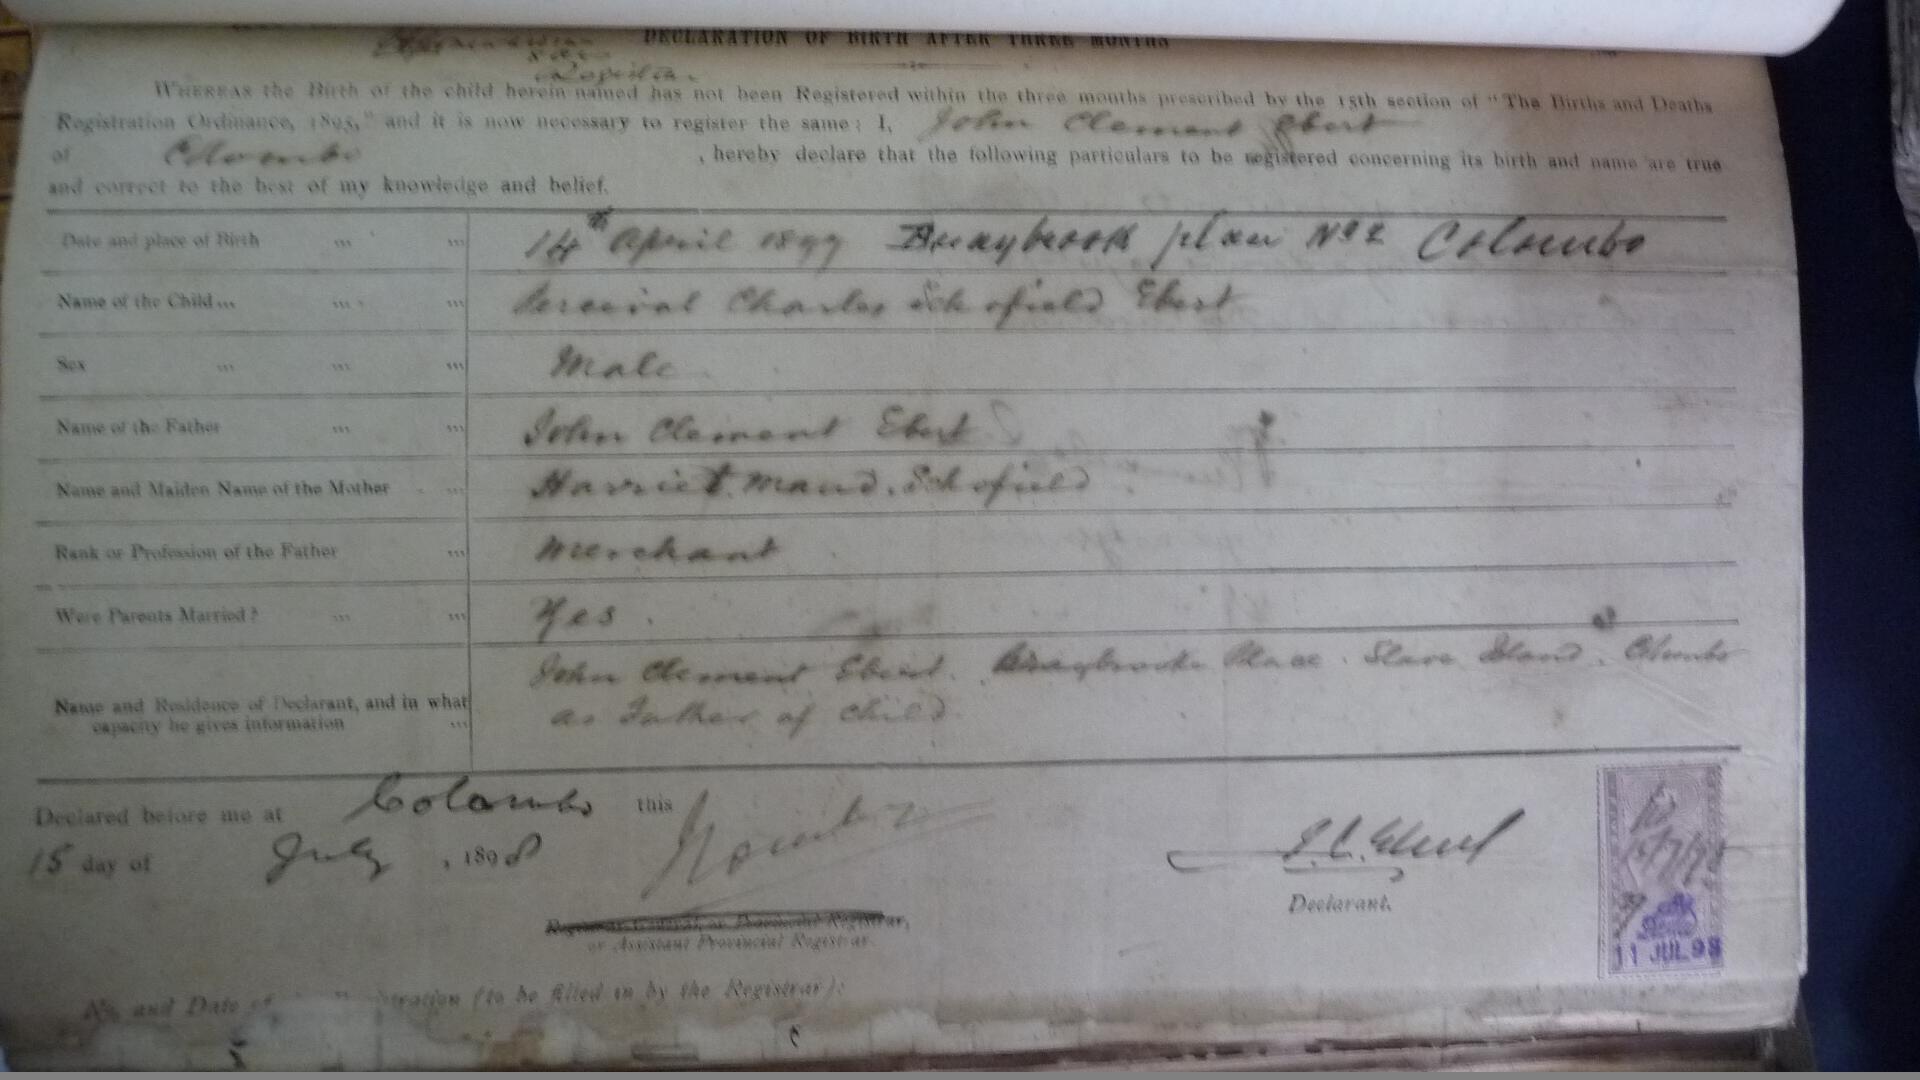 DECLARATION OF BIRTH AFTER THREE MONTHS
Registrar
WHEREAS the Birth of the child herein named has not been Registered within the three months prescribed by the 15th section of "The Births and Deaths
Registration Ordinance, 1895," and it is now necessary to register the same: I, John Clement Ebert
of Colombo , hereby declare that the following particulars to be registered concerning its birth and name are true
and correct to the best of my knowledge and belief.
Date and place of Birth ... ... 14th April 1897 Braybrook place No 2 Colombo
Name of the Child ... ... ... Percival Charles Schofield Ebert
Sex ... ... ... Male
Name of the Father ... ... John Clement Ebert
Name and Maiden Name of the Mother ... Harriet Maud Schofield
Rank or Profession of the Father ... Merchant
Were Parents Married? ... ... Yes.
John Clement Ebert. Braybrooke Place. Slave Island. Colombo
Name and Residence of Declarant, and in what
capacity he gives information ... as Father of Child
Declared before me at Colombo this
15 day of July , 1898
J. C. Ebert
Declarant.
Registrar-General, or Provincial Registrar,
or Assistant Provincial Registrar.
11 JUL 98
No. and Date of Registration (to be filled in by the Registrar):